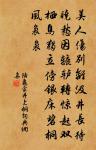 美人傷別離汲井長待
曉愁因轆轤轉驚起雙
棲鳥獨立傍銀床碧桐
風裊裊
陸龜蒙井上桐